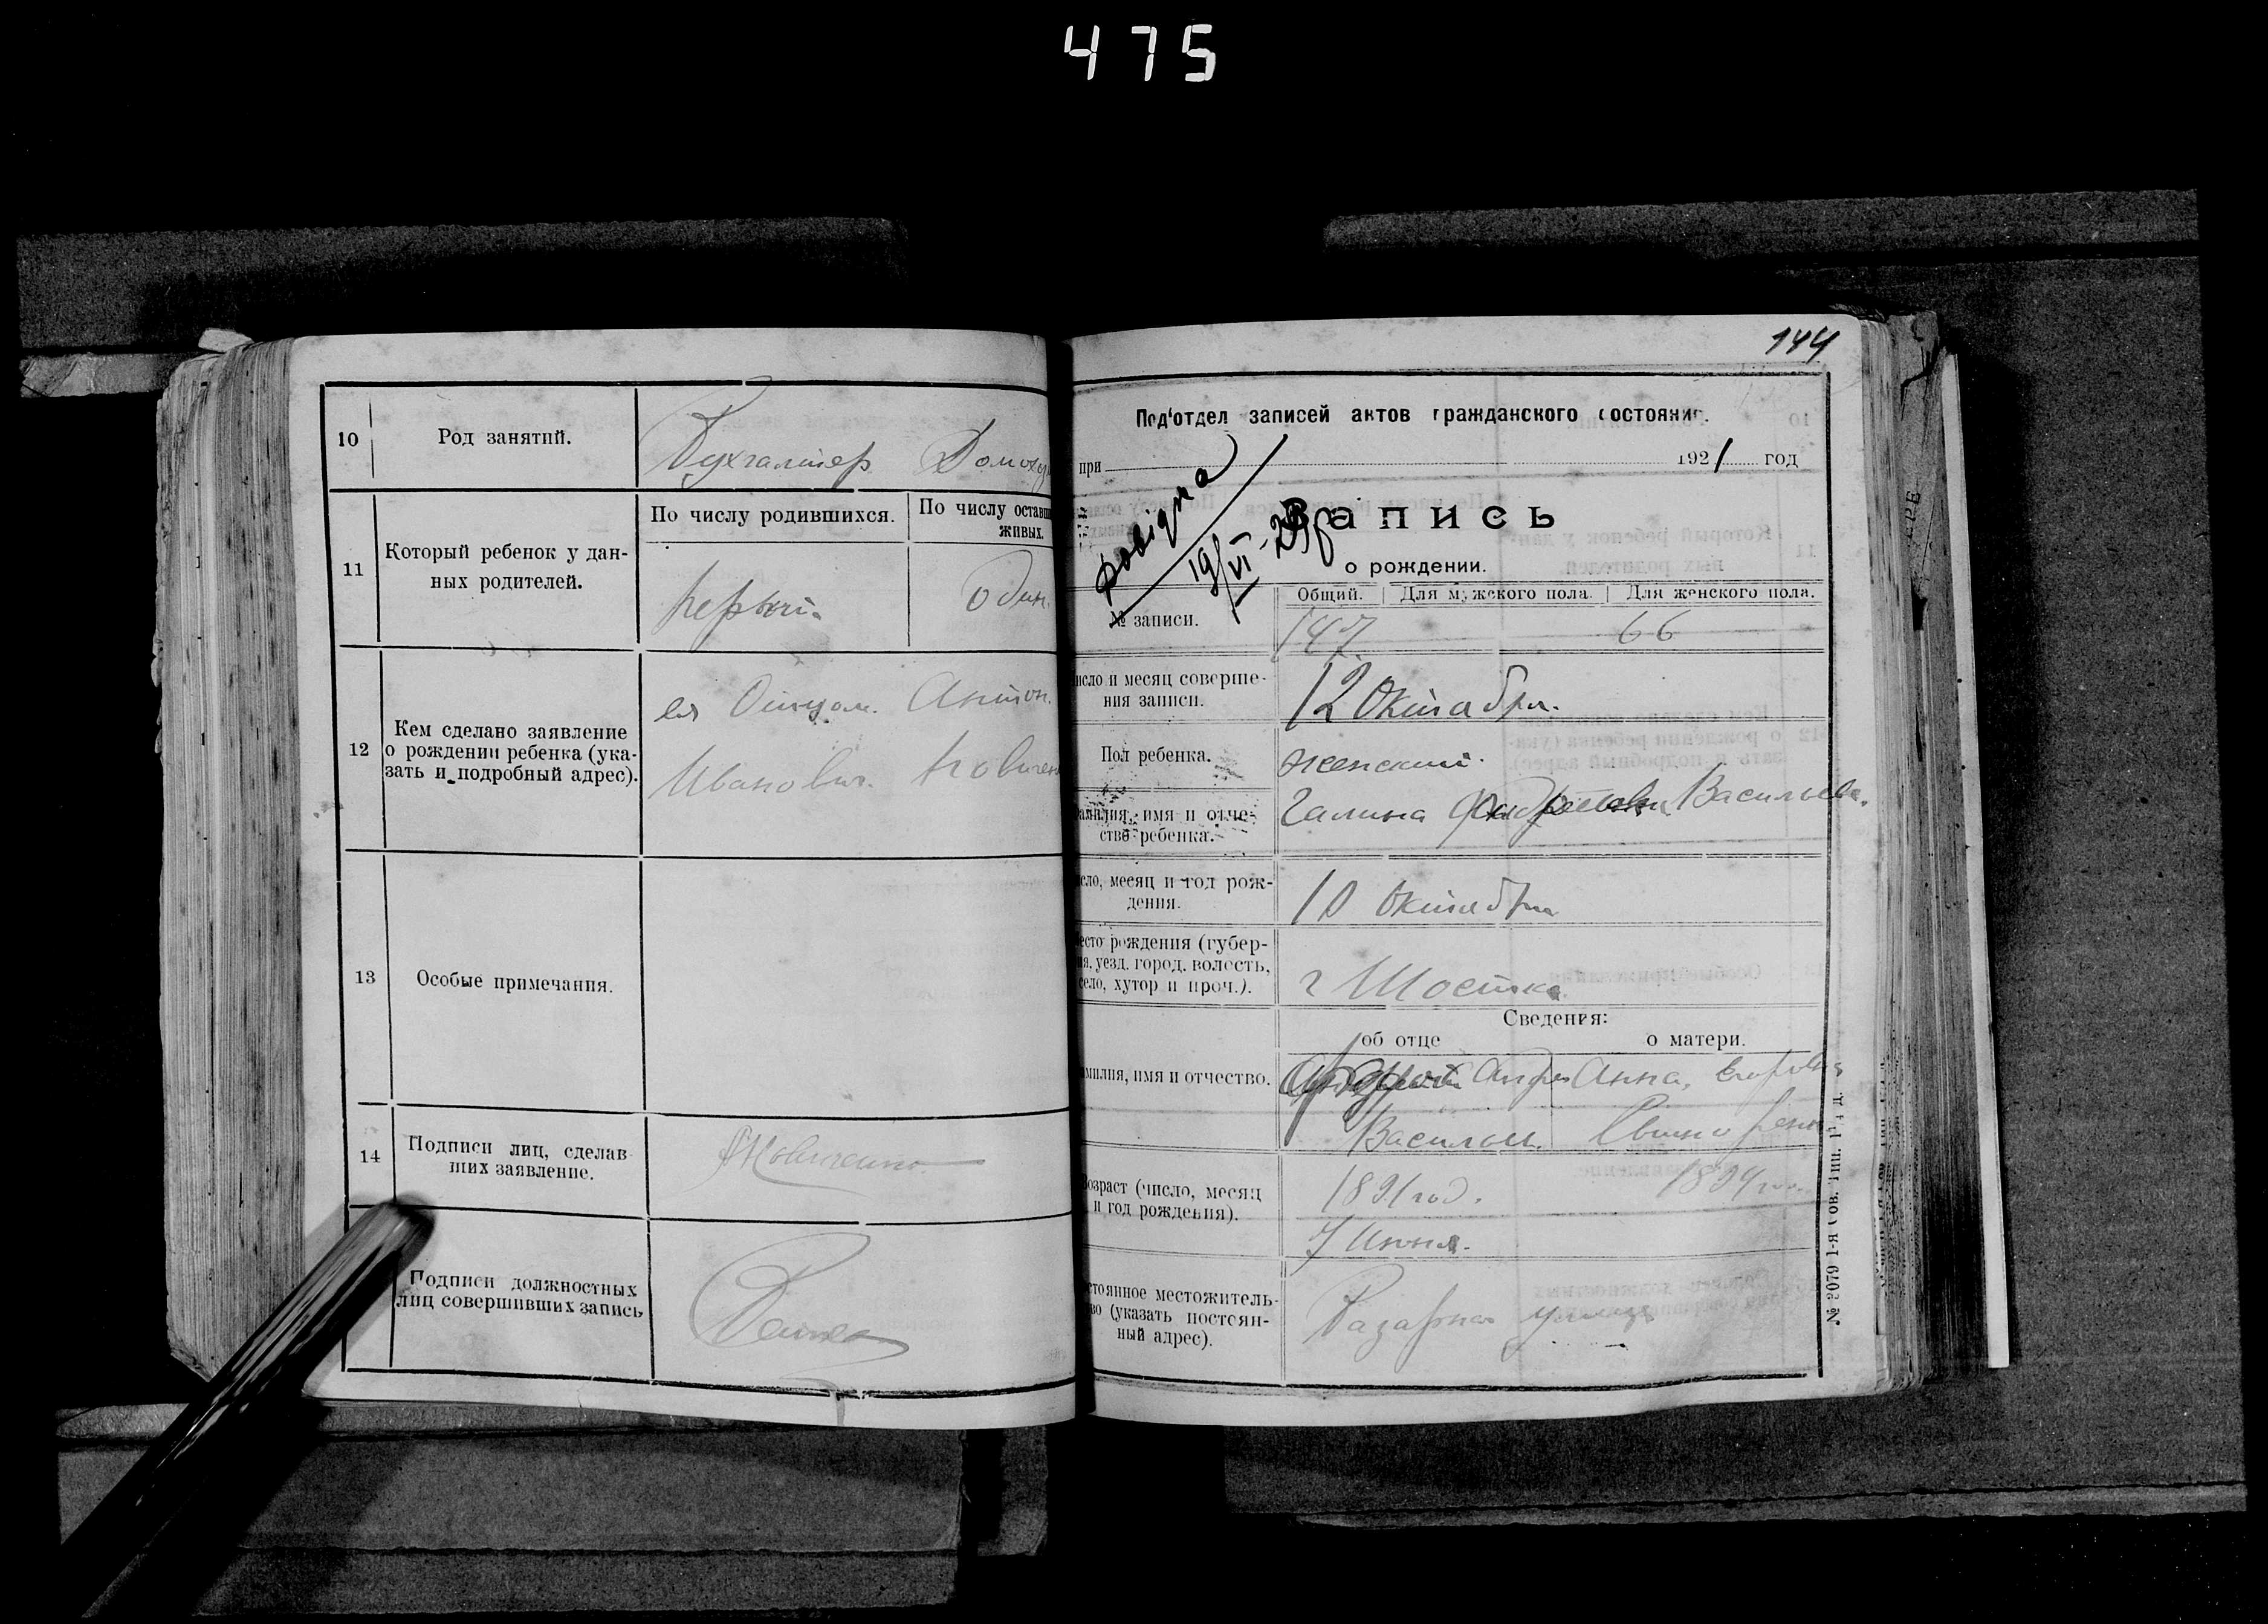 475
10
Род занятий.
Бухгалтер
11
Который ребенок у дан-
ных родителей.
По числу родившихся.
По числу оставш
живых.
первый.
один.
12
Кем сделано заявление
о рождении ребенка (ука-
зать и подробный адрес).
Отцом. Антон.
Иванович.
13
Особые примечания.
14
Подписи лиц, сделав-
ших заявление.
Подписи должностных
лиц совершивших запись
144
Под'отдел записей актов гражданского состояния.
при 1921 год
19/VI-29
Запись
о рождении.
№ записи.
Общий. Для мужского пола. Для женского пола.
147 66
исло и месяц соверше-
ния записи.
12 Октября.
Пол ребенка.
женский.
амилия, имя и отче-
ство ребенка.
Галина Васильева.
сло, месяц и год рож-
дения.
10 Октября
есто рождения (губер-
ия, уезд, город, волость,
село, хутор и проч.).
г Шостка
Сведения:
об отце о матери.
милия, имя и отчество.
Анна,
Васильев.
озраст (число, месяц
и год рождения).
1891 год. 1894
7 Июня.
стоянное местожитель-
во (указать постоян-
ный адрес).
Базарная улица
№ 2079 1-я Сов. Тип.